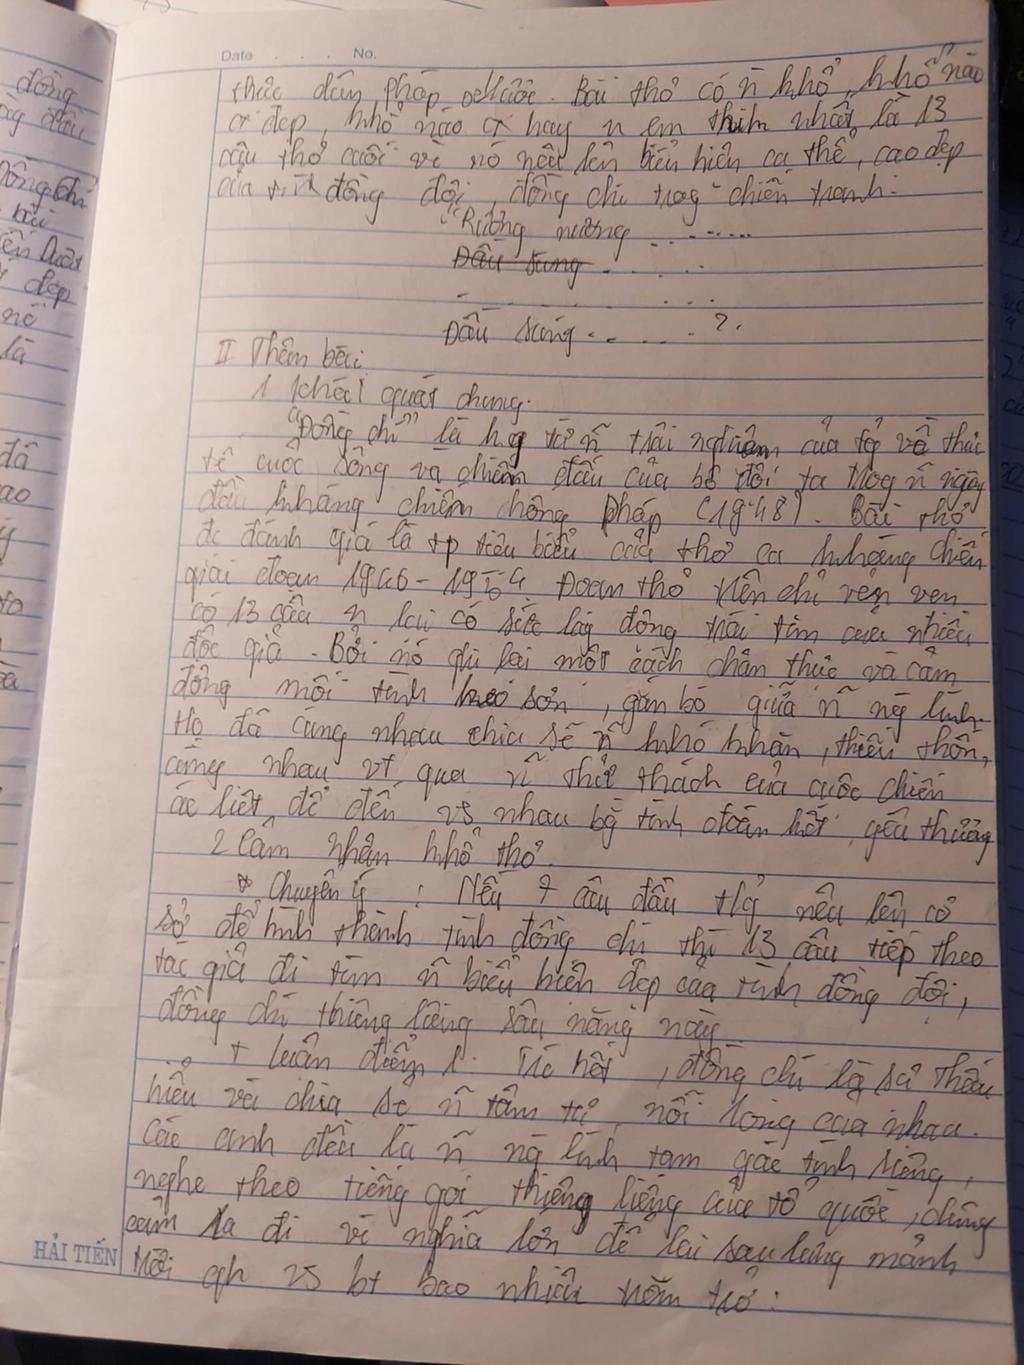 đồng
Date No.
thực dân Pháp xâm lược. Bài thơ có ñ khổ, khổ nào
cx đẹp, khổ nào cx hay n em thích nhất là 13
câu thơ cuối vì nó nêu lên biểu hiện cụ thể, cao đẹp
của t/c đồng đội, đồng chí trog chiến tranh.
"Ruộng nương ........
Đầu súng ......
. ...
Đầu súng ... . ?.
II Thân bài.
1 Khái quát chung.
"Đồng chí" là từ ñ trải nghiệm của tg về thực
tế cuộc sống và chiến đấu của bộ đội ta trog ñ ngày
đầu kháng chiến chống Pháp (1948). Bài thơ
đc đánh giá là tp tiêu biểu của thơ ca kháng chiến
giai đoạn 1946-1954. Đoạn thơ trên chỉ vẻn vẹn
có 13 câu n lại có sức lay động trái tim của nhiều
độc giả. Bởi nó ghi lại một cách chân thực và cảm
động mối tình keo sơn, gắn bó giữa ñ ng lính.
Họ đã cùng nhau chia sẽ ñ khó khăn, thiếu thốn,
cùng nhau vt qua ñ thử thách của cuộc chiến
ác liệt, để đến vs nhau bg tình đoàn kết yêu thương
2 Cảm nhận khổ thơ.
* Chuyển ý : Nếu 7 câu đầu nêu lên cơ
sở để hình thành tình đồng chí thì 13 câu tiếp theo
tác giả đi tìm ñ biểu hiện đẹp của tình đồng đội,
đồng chí thiêng liêng sâu nặng này
+ Luận điểm 1. Trc hết, đồng chí là sự thấu
hiểu và chia sẻ ñ tâm tư, nỗi lòng của nhau.
Các anh đều là ñ ng lính tạm gác tình riêng,
nghe theo tiếng gọi thiêng liêng của tổ quốc, dũng
cảm ra đi vì nghĩa lớn để lại sau lưng mảnh
trời qh vs bt bao nhiêu trăn trở :
HẢI TIẾN